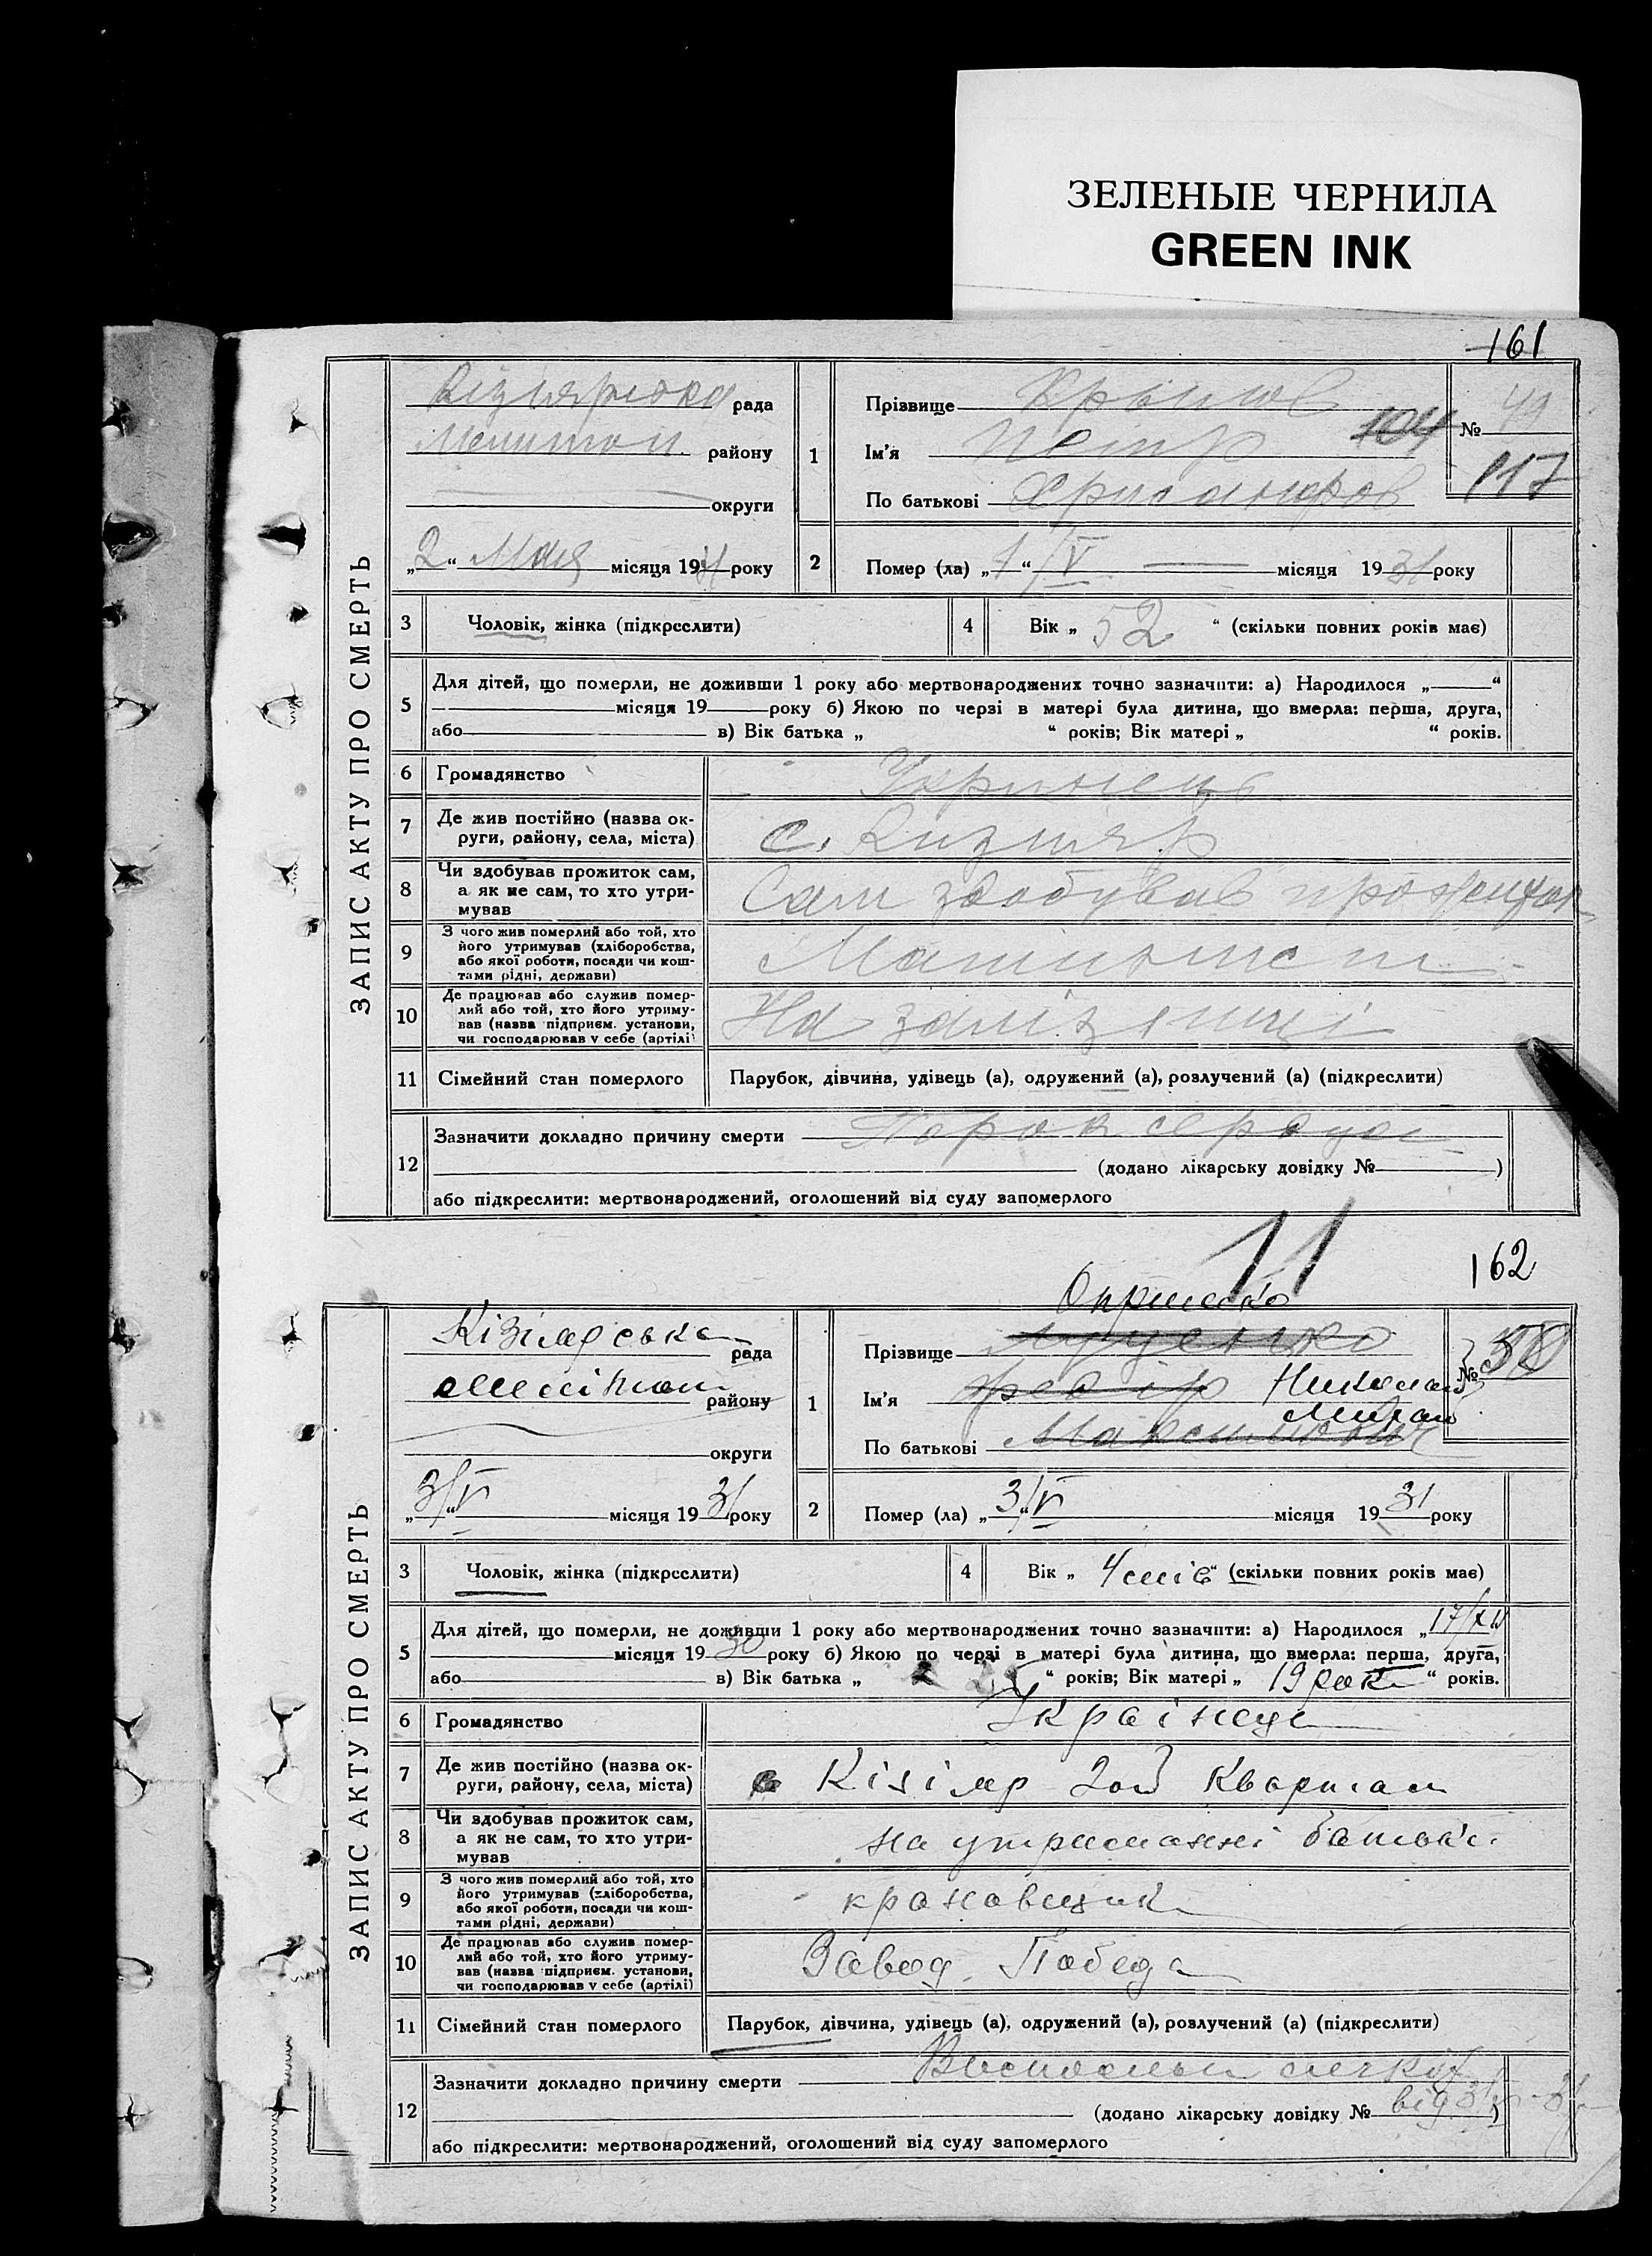 ЗЕЛЕНЫЕ ЧЕРНИЛА
GREEN INK
161
ЗАПИС АКТУ ПРО СМЕРТЬ
рада
району
округи
„2“ Мая місяця 1931 року
1
Прізвище
Ім'я Петр
104
По батькові
№ 49
117
2
Помер (ла) „1“ /V місяця 1931 року
3
Чоловік, жінка (підкреслити)
4
Вік „ 52 “ (скільки повних років має)
5
Для дітей, що померли, не доживши 1 року або мертвонароджених точно зазначити: а) Народилося „ “
місяця 19 року б) Якою по черзі в матері була дитина, що вмерла: перша, друга,
або в) Вік батька „ “ років; Вік матері „ “ років.
6
Громадянство Украінець
7
Де жив постійно (назва ок-
руги, району, села, міста)
с. Кизияр
8
Чи здобував прожиток сам,
а як не сам, то хто утри-
мував
Сам здобував прожиток
9
З чого жив померлий або той, хто
його утримував (хліборобства,
або якої роботи, посади чи кош-
тами рідні, держави)
Машиніст
10
Де працював або служив помер-
лий або той, хто його утриму-
вав (назва підприєм. установи,
чи господарював у себе (артілі)
На залізниці
11
Сімейний стан померлого
Парубок, дівчина, удівець (а), одружений (а), розлучений (а) (підкреслити)
12
Зазначити докладно причину смерти Порок сердца
(додано лікарську довідку № )
або підкреслити: мертвонароджений, оголошений від суду запомерлого
11
162
ЗАПИС АКТУ ПРО СМЕРТЬ
Кізіярська рада
району
округи
„3/“V місяця 1931 року
1
Опришко
Прізвище
Ім'я Федір Николай
По батькові Максимович
№ 50
2
Помер (ла) „3/“V місяця 1931 року
3
Чоловік, жінка (підкреслити)
4
Вік „ 4 міс “ (скільки повних років має)
5
Для дітей, що померли, не доживши 1 року або мертвонароджених точно зазначити: а) Народилося „17/XII
місяця 1930 року б) Якою по черзі в матері була дитина, що вмерла: перша, друга,
або в) Вік батька „ “ років; Вік матері „ 19 рокі “ років.
6
Громадянство Українец
7
Де жив постійно (назва ок-
руги, району, села, міста)
с Кізіяр 2ой Квартал
8
Чи здобував прожиток сам,
а як не сам, то хто утри-
мував
на утриманні батька
9
З чого жив померлий або той, хто
його утримував (хліборобства,
або якої роботи, посади чи кош-
тами рідні, держави)
крановщик
10
Де працював або служив помер-
лий або той, хто його утриму-
вав (назва підприєм. установи,
чи господарював у себе (артілі)
Завод. Победа
11
Сімейний стан померлого
Парубок, дівчина, удівець (а), одружений (а), розлучений (а) (підкреслити)
12
Зазначити докладно причину смерти
(додано лікарську довідку № від )
або підкреслити: мертвонароджений, оголошений від суду запомерлого